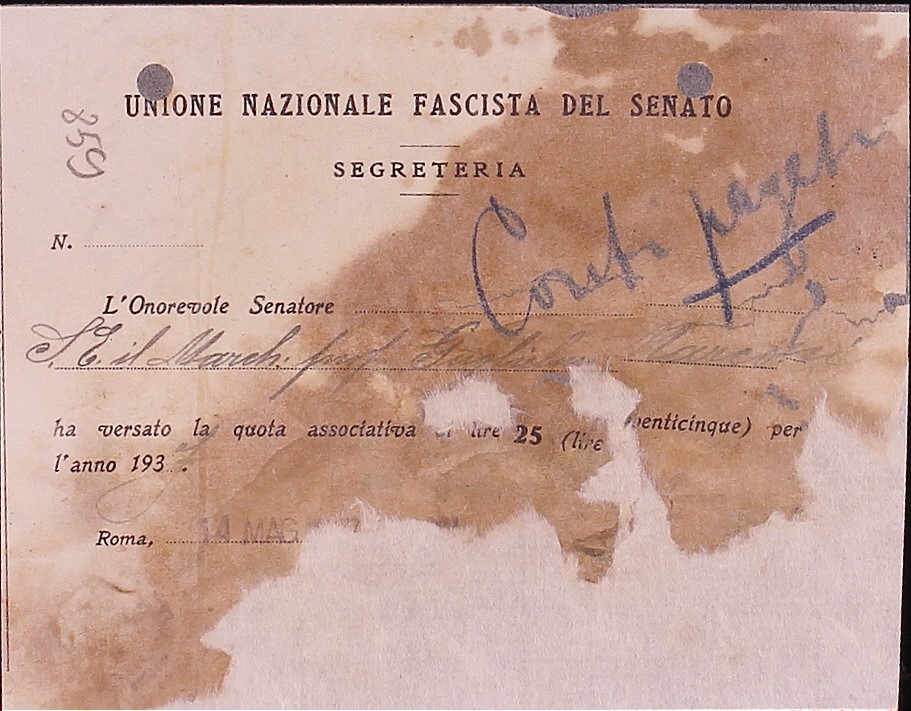 859
UNIONE NAZIONALE FASCISTA DEL SENATO
SEGRETERIA
Conti pagati
N.
L'Onorevole Senatore
S. E. il March. prof. Guglielmo Marconi
ha versato la quota associativa di lire 25 (lire venticinque) per
l'anno 193
Roma, 14 MAG